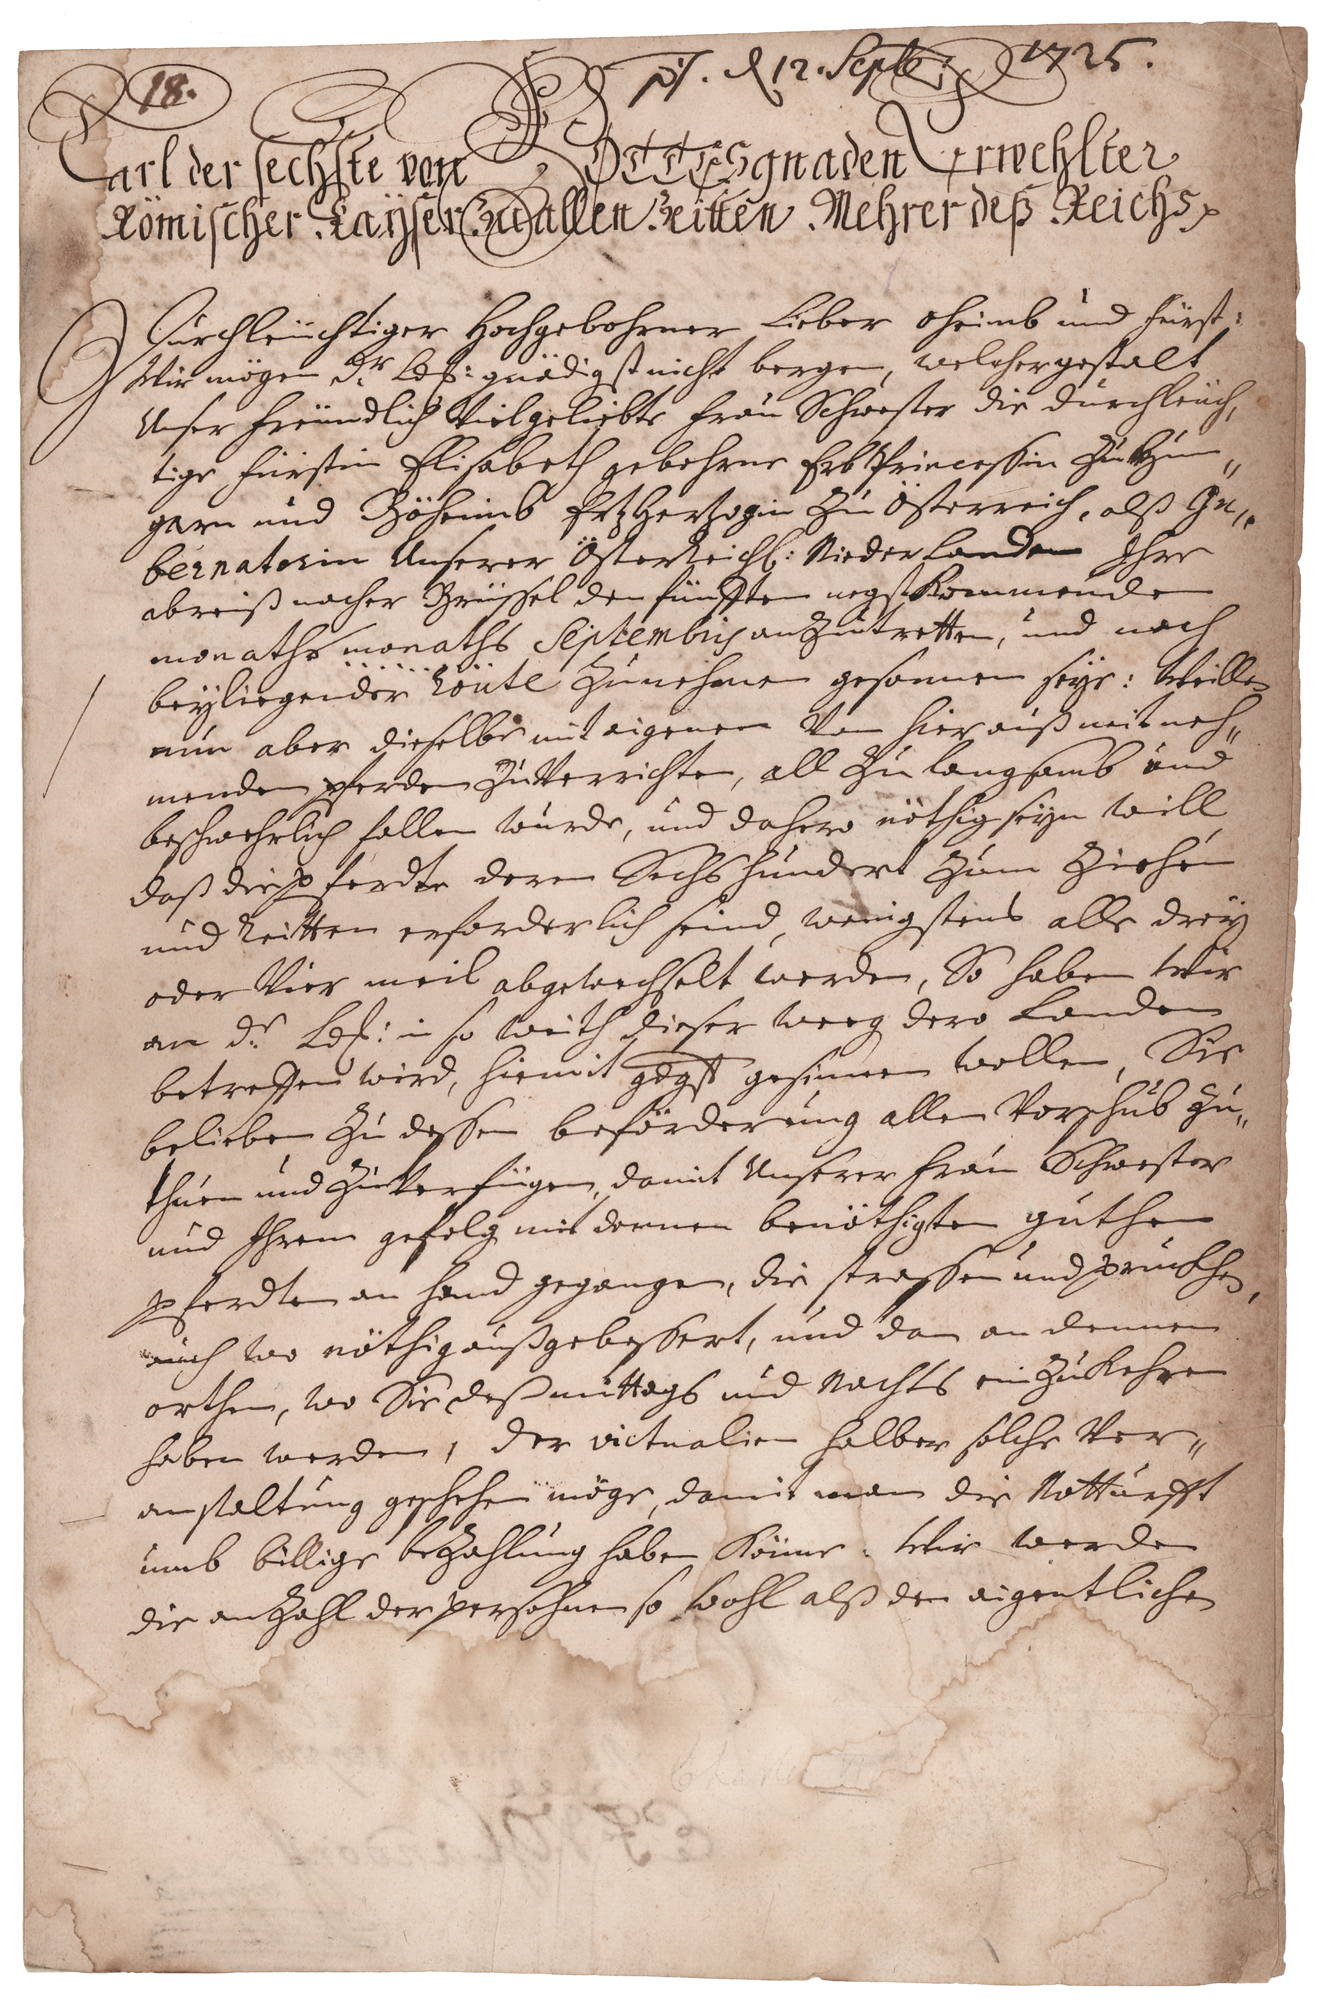 18.
pst. d 12. Septb: 1725.
Carl der sechste von GOTTES gnaden Erwehlter
Römischer Kaÿser zu allen Zeitten Mehrer deß Reichs
Durchleüchtiger Hochgebohrner Lieber Oheimb und Fürst:
Wir mögen Dr. Ld: gnädigst nicht bergen, welchergestalt
Unser freündlich Vielgeliebte Frau Schwester die Durchleüch,
tige Fürstin Elisabeth gebohrne Erb Princessin zu Hun„
garn und Böheimb Ertzhertzogin zu Österreich, alß Gu„
bernatorin Unserer Österreichl: Niederlanden Ihre
abreiß nacher Brüssel den fünfften negst kommenden
monaths monaths Septembris anzutretten, und nach
beyliegender Route zunehmen gesonnen seye: Weillen
nun aber dieselbe mit aigenen Von hierauß mitneh„
menden pferden zu Verrichten, all zu langsamb und
beschwehrlich fallen wurde, und dahero nöthig seyn will
daß die pferdte deren Sechshundert zum Ziehen
und Reitten erforderlich seind, wenigstens alle dreÿ
oder Vier meil abgewechselt werden, So haben Wir
an Dr. Ld: in so weith dieser weeg dero Landen
betreffen wird, hiemit gdgst gesinnen wollen, Sie
belieben zu dessen beförderung allen Vorschub zu„
thuen und zu Verfügen, damit Unserer Frau Schwester
und Ihrem gefolg mit denen benöthigten guthen
pferdten an hand gegangen, die strassen und prückhen,
auch wo nöthig außgebessert, und dan an denen
orthen, wo Sie deß mittags und Nachts einzukehren
haben werden, der victualien halber solche Ver„
anstaltung geschehen möge, damit man die Notturfft
umb billige bezahlung haben könne. Wir werden
die anzahl der persohnen so wohl alß den aigentlichen